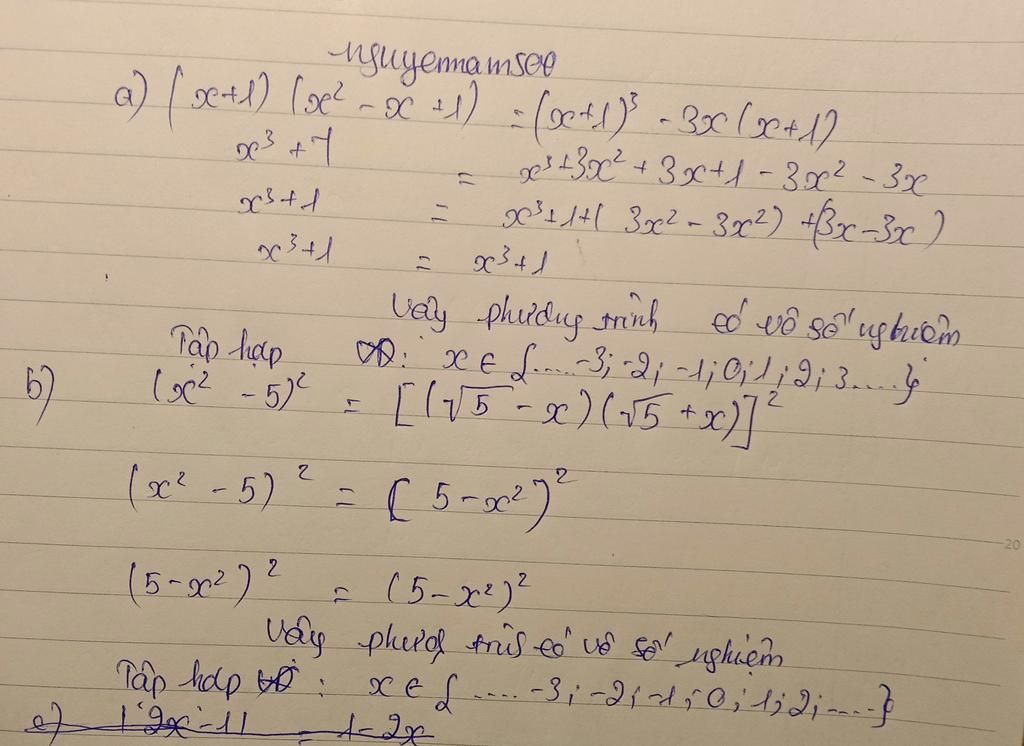 nguyennam500
a) (x+1) (x² - x +1) = (x+1)³ - 3x (x+1)
x³ + 1 = x³+3x² + 3x+1 - 3x² - 3x
x³+1 = x³+1+( 3x² - 3x²) +(3x-3x)
x³+1 = x³+1
Vậy phương trình có vô số nghiệm
Tập hợp : x ∈ {.....-3;-2;-1;0;1;2;3.....}
b) (x² - 5)² = [(√5 - x)(√5 + x)]²
(x² - 5)² = [5-x²)²
(5-x²)² = (5-x²)²
Vậy có vô số nghiệm
Tập hợp : x ∈ {.....-3;-2;-1;0;1;2;.....}
c) |2x-1| = 1-2x